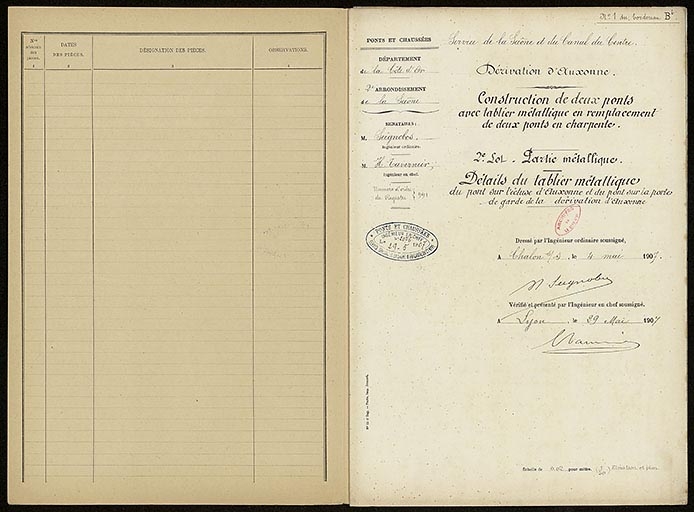 Nos
DATES
DES PIÈCES.
DÉSIGNATION DES PIÈCES.
OBSERVATIONS.
1
2
3
4
No 1 du bordereau B
PONTS ET CHAUSSÉES
DÉPARTEMENT
de la Côte d'Or
2e ARRONDISSEMENT
de la Saône
SIGNATAIRES :
M. Seignobos,
Ingénieur ordinaire.
M. H. Tavernier,
Ingénieur en chef.
Numéro d'ordre
du Registre
PONTS ET CHAUSSÉES
Service de la Saône et du Canal du Centre.
Dérivation d'Auxonne.
Construction de deux ponts
avec tablier métallique en remplacement
de deux ponts en charpente.
2e Lot - Partie métallique.
Détails du tablier métallique
du pont sur l'écluse d'Auxonne et du pont sur la porte
de garde de la dérivation d'Auxonne
Dressé par l'Ingénieur ordinaire soussigné,
A Chalon s/S, le 4 mai 1907.
Vérifié et présenté par l'Ingénieur en chef soussigné,
A Lyon, le 29 Mai 1907
Échelle de 0.02 pour mètre.